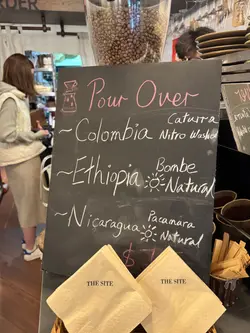 RDER
Pour Over
~Colombia Caturra
Nitro Washed
~Ethiopia Bombe
Natural
~Nicaragua Pacamara
Natural
$7
THE SITE
THE SITE